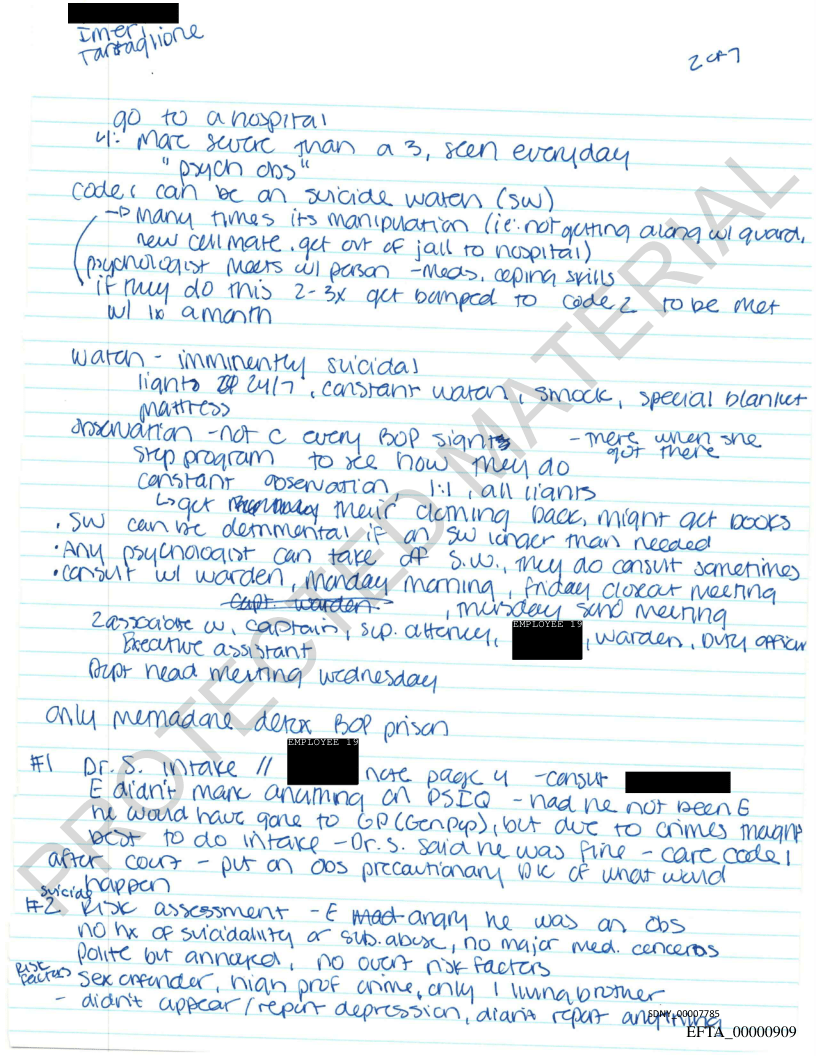 Imer,
Tartaglione
2 of 7
go to a hospital
4: More severe than a 3, seen everyday
"psych obs"
Code 1 can be on suicide watch (SW)
→ Many times its manipulation (ie: not getting along w/ guard,
new cellmate, get out of jail to hospital)
psychologist meets w/ person - meds, coping skills
if they do this 2-3x get bumped to code 2 to be met
w/ 1x a month
Watch - imminently suicidal
lights 24/7, constant watch, smock, special blanket
mattress
Observation - not @ every BOP sights - there when she
got there
Step program to see how they do
constant observation, 1:1, all lights
↳ get their clothing back, might get books
· SW can be detrimental if on SW longer than needed
· Any psychologist can take off S.W., they do consult sometimes
· consult w/ warden, Monday morning, Friday closeout meeting
Capt. warden. , Thursday SHU meeting
2 associate w, captain, sup. attorney, EMPLOYEE 19, warden, Duty officer
Executive assistant
Dept head meeting wednesday
only methadone detox BOP prison
#1 Dr. S. intake // EMPLOYEE 19 note page 4 - consult
E didn't mark anything on PSIQ - had he not been E
he would have gone to GP (GenPop), but due to crimes thought
best to do intake - Dr. S. said he was fine - care code 1
after court - put on obs precautionary b/c of what would
happen
#2 suicide Risk assessment - E mad angry he was on obs
no hx of suicidality or sub. abuse, no major med. concerns
Polite but annoyed, no overt risk factors
Risk factors sex offender, high prof crime, only 1 living brother
- didn't appear / report depression, didn't report anything
PROTECTED MATERIAL
SDNY_00007785
EFTA_00000909